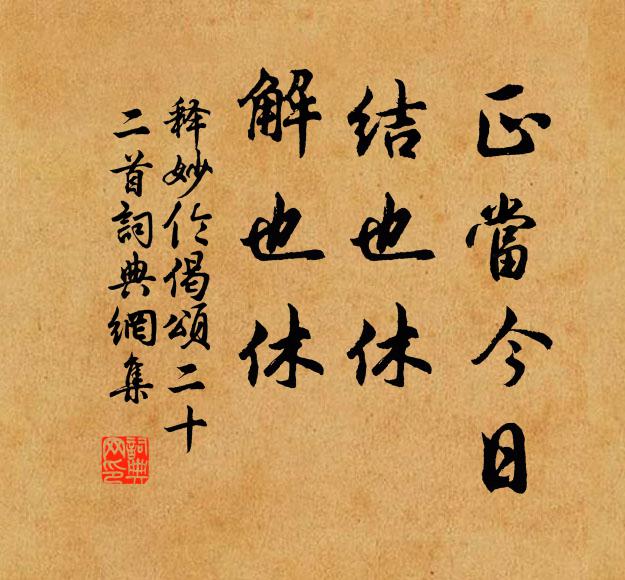 正當今日
結也休
解也休
释妙伦偈頌二十
二首詞典網集
詞典
网印